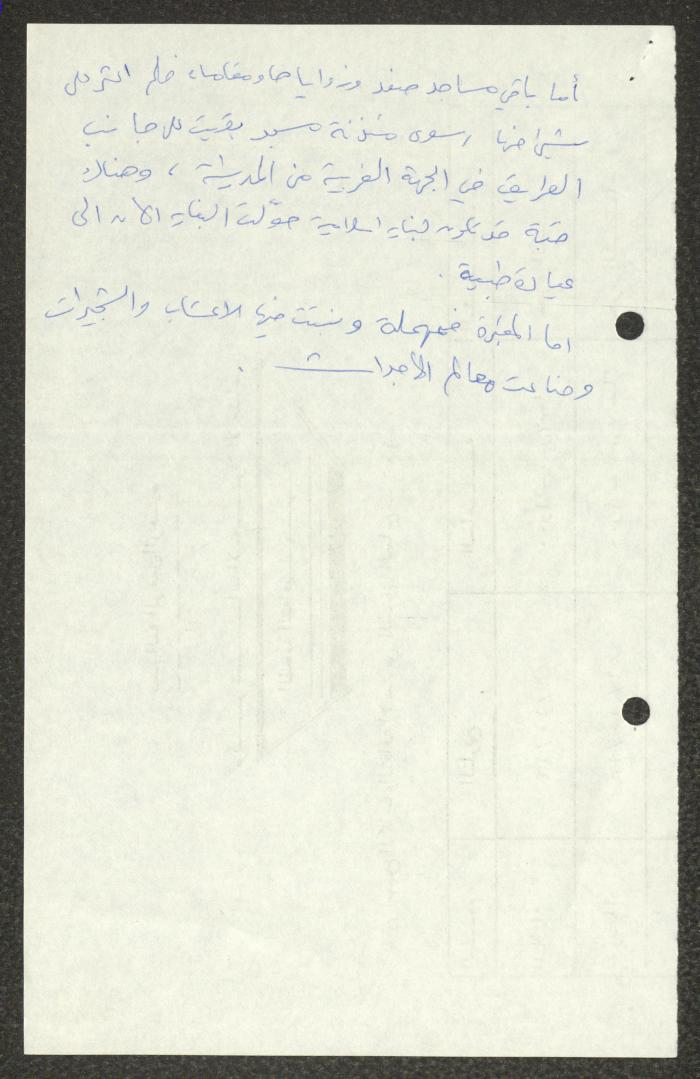 أما باقي مساجد صفد وزواياها ومقاماتها فلم اعثر على
شيء منها سوى مئذنة مسجد بقيت على جانب
الطريق في الجهة الغربية من المدينة ، وهناك
قبة قد تكون لبناية اسلامية حوّلت البناية الآن الى
عيادة طبية .
اما المقبرة فمهملة ونبتت فيها الاعشاب والشجيرات
وضاعت معالم الأجداث .